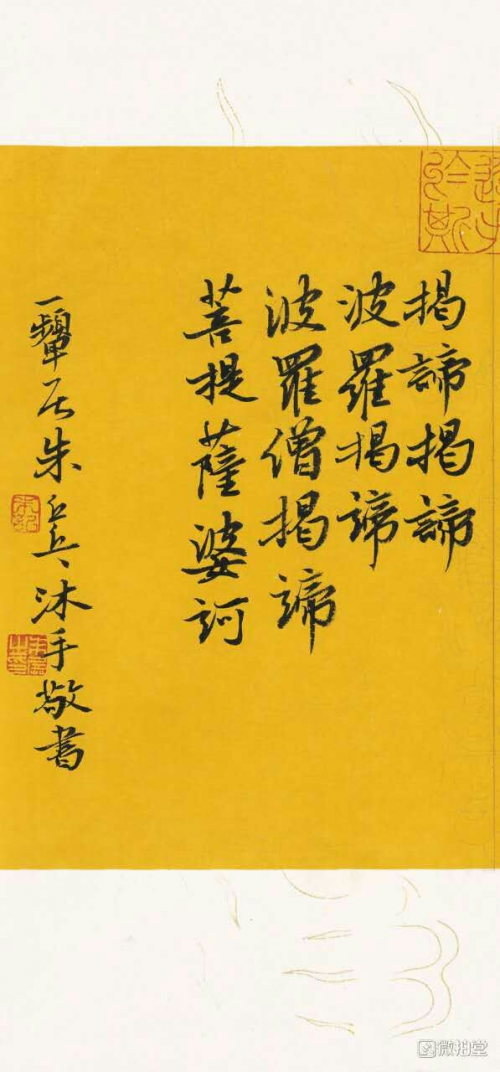 揭諦揭諦
波羅揭諦
波羅僧揭諦
菩提薩婆訶
一顰居朱兵沐手敬書
微拍堂